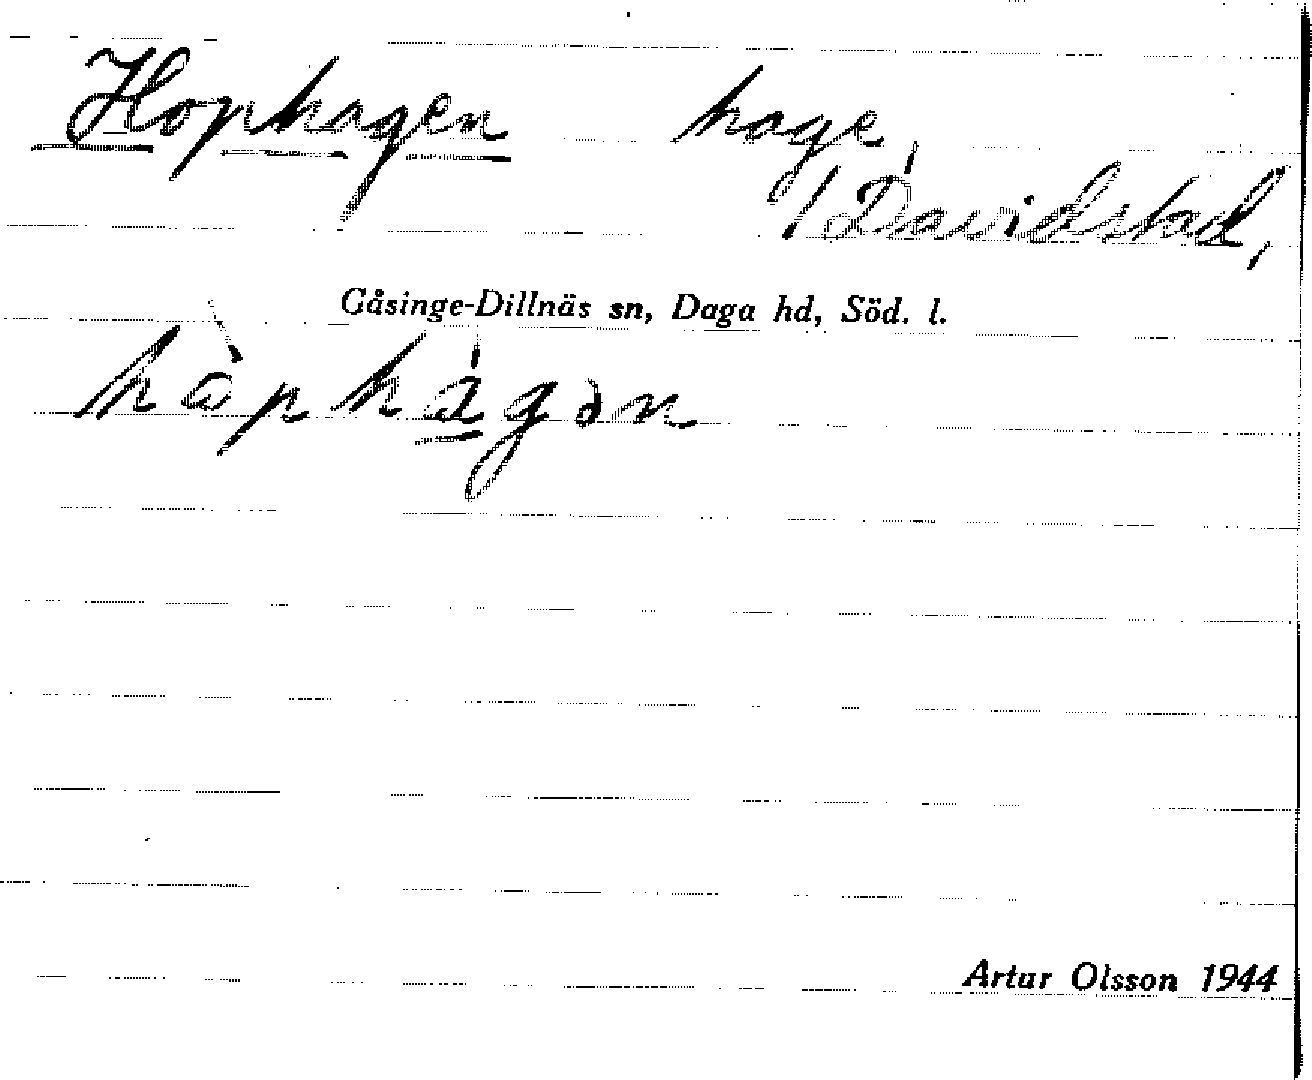 Hophagen hage,
/Davidstad,
Gåsinge-Dillnäs sn, Daga hd, Söd. l.
hòphágən
Artur Olsson 1944